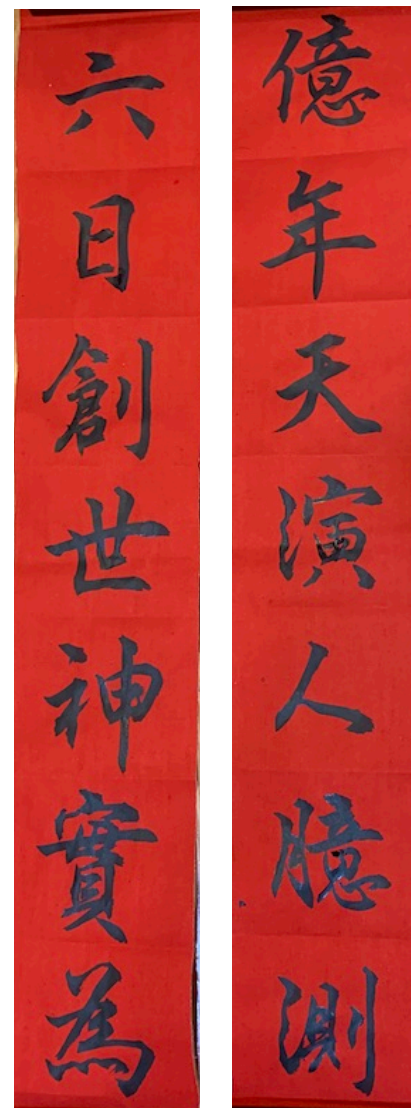 億年天演人臆測
六日創世神實為